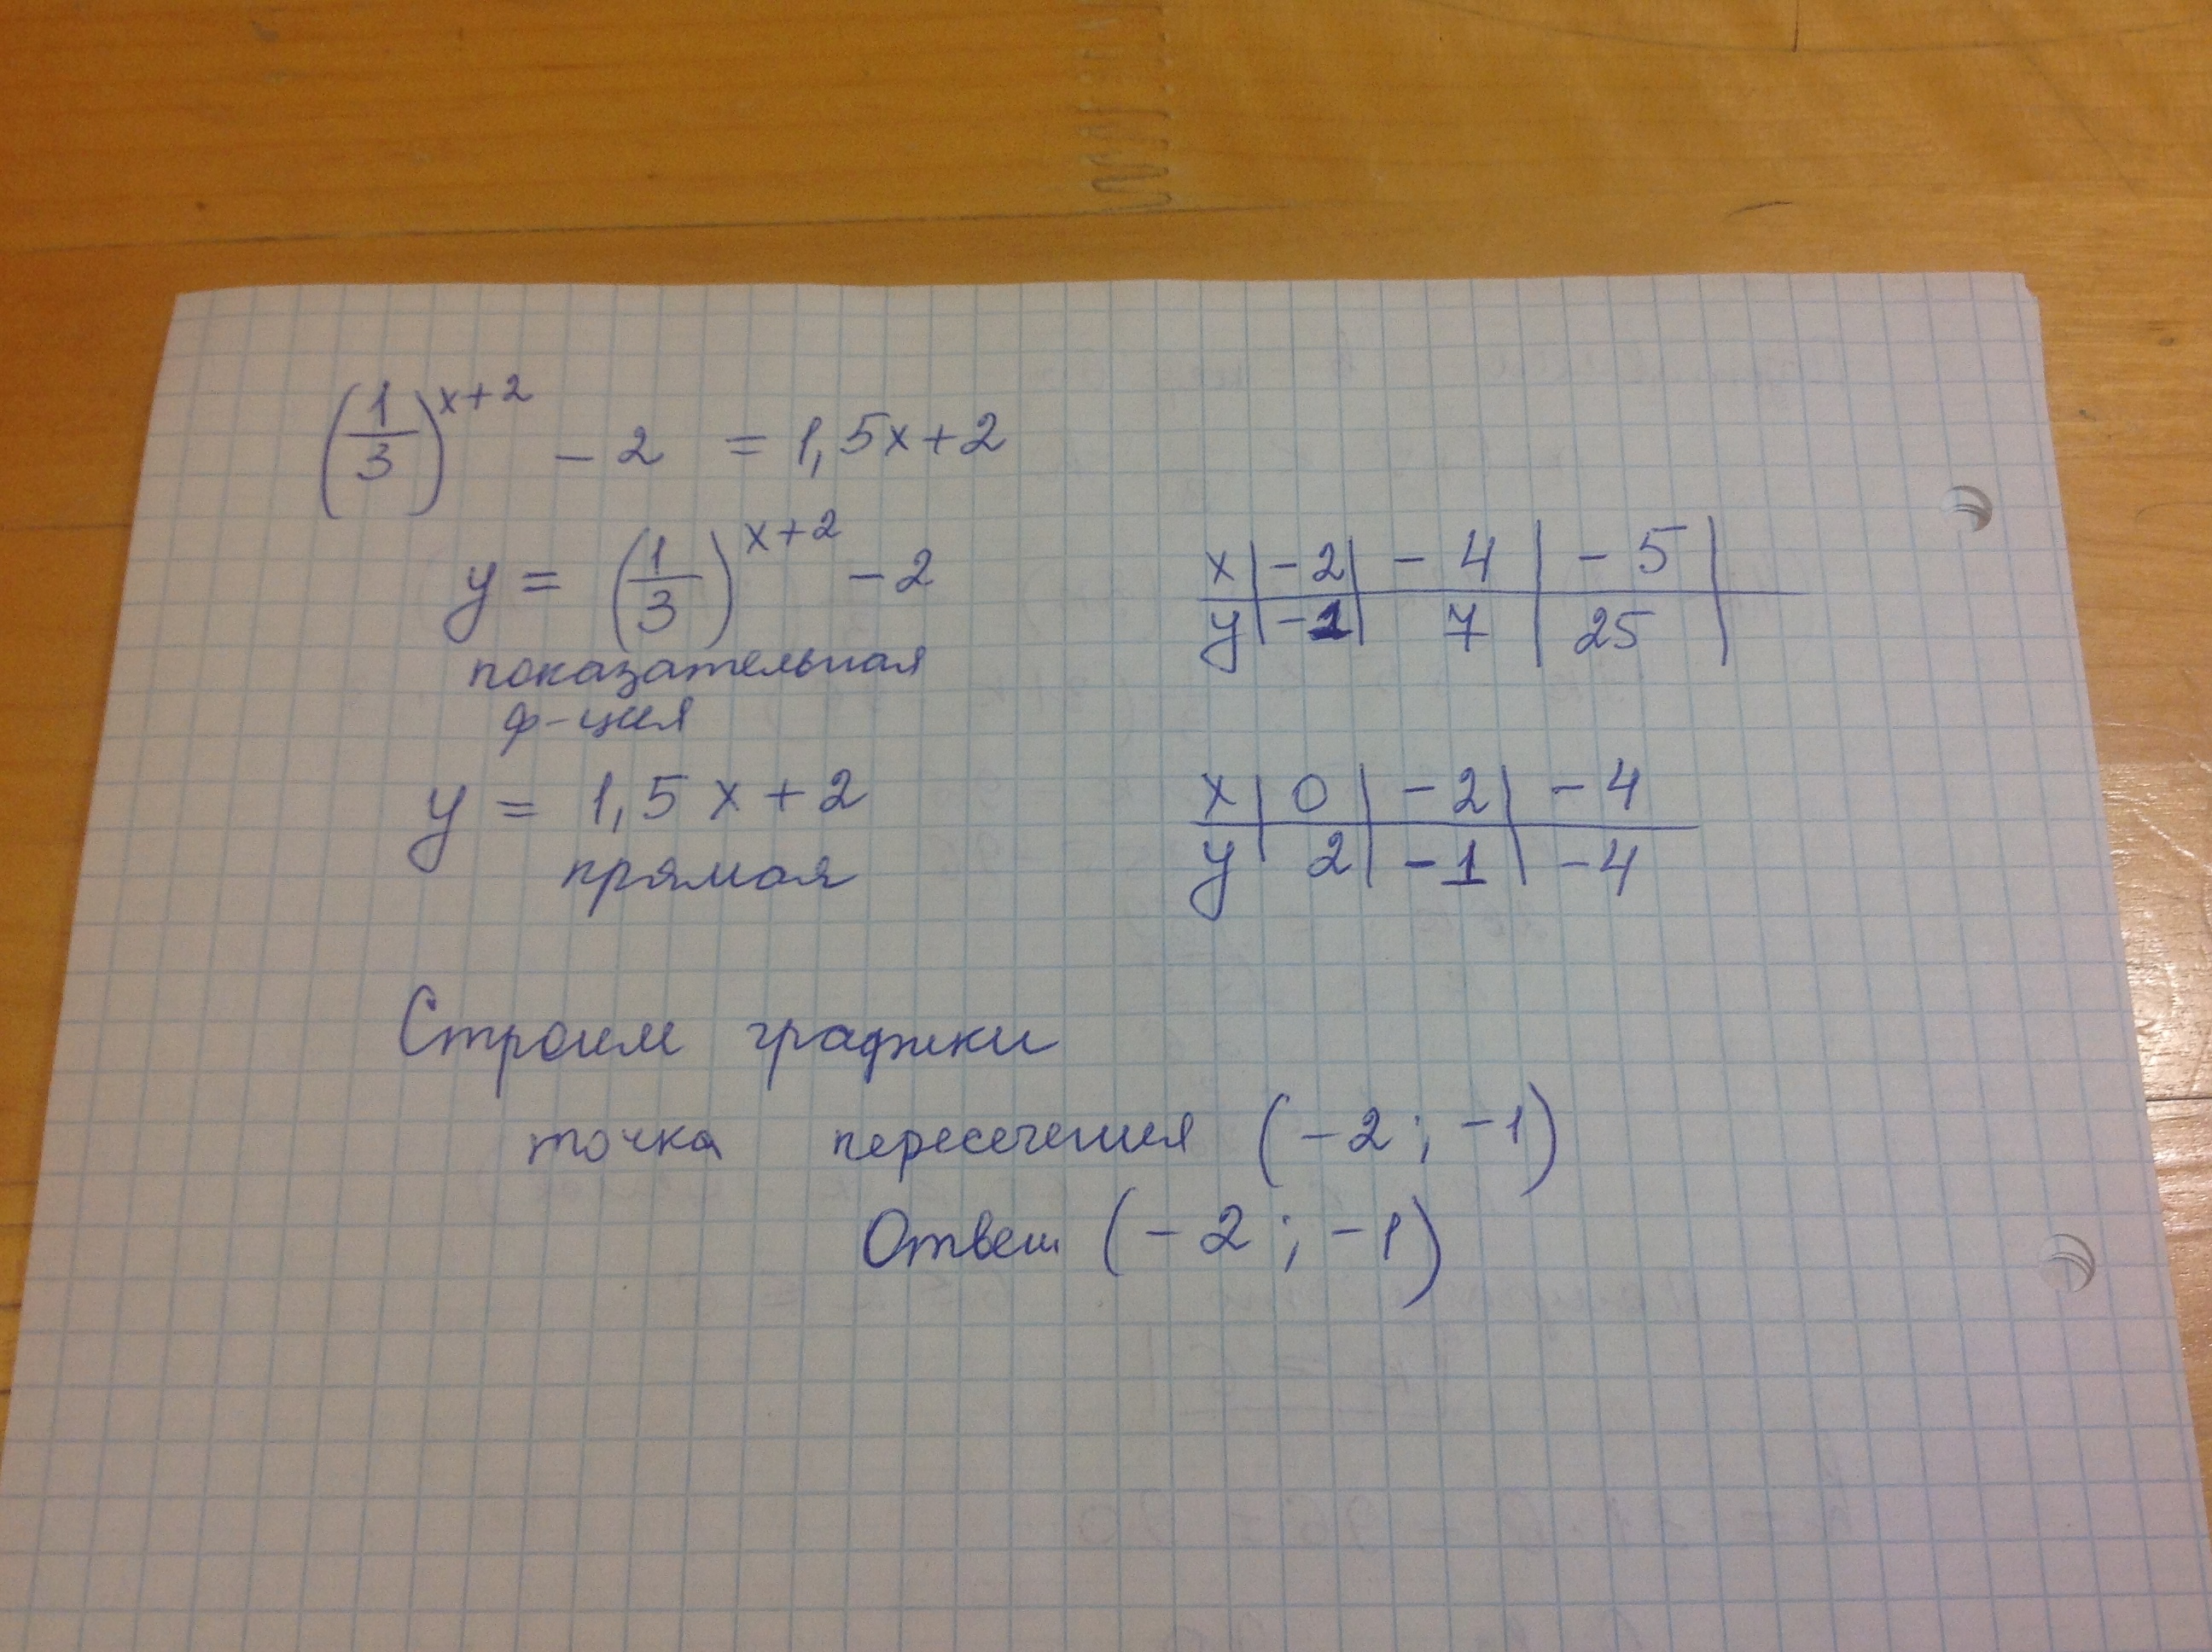 (1/3)^(x+2) - 2 = 1,5x+2
y = (1/3)^(x+2) - 2
показательная
ф-ция
x | -2 | -4 | -5 |
y | -1 | 7 | 25 |
y = 1,5x+2
прямая
x | 0 | -2 | -4
y | 2 | -1 | -4
Строим графики
точка пересечения (-2; -1)
Ответ (-2; -1)